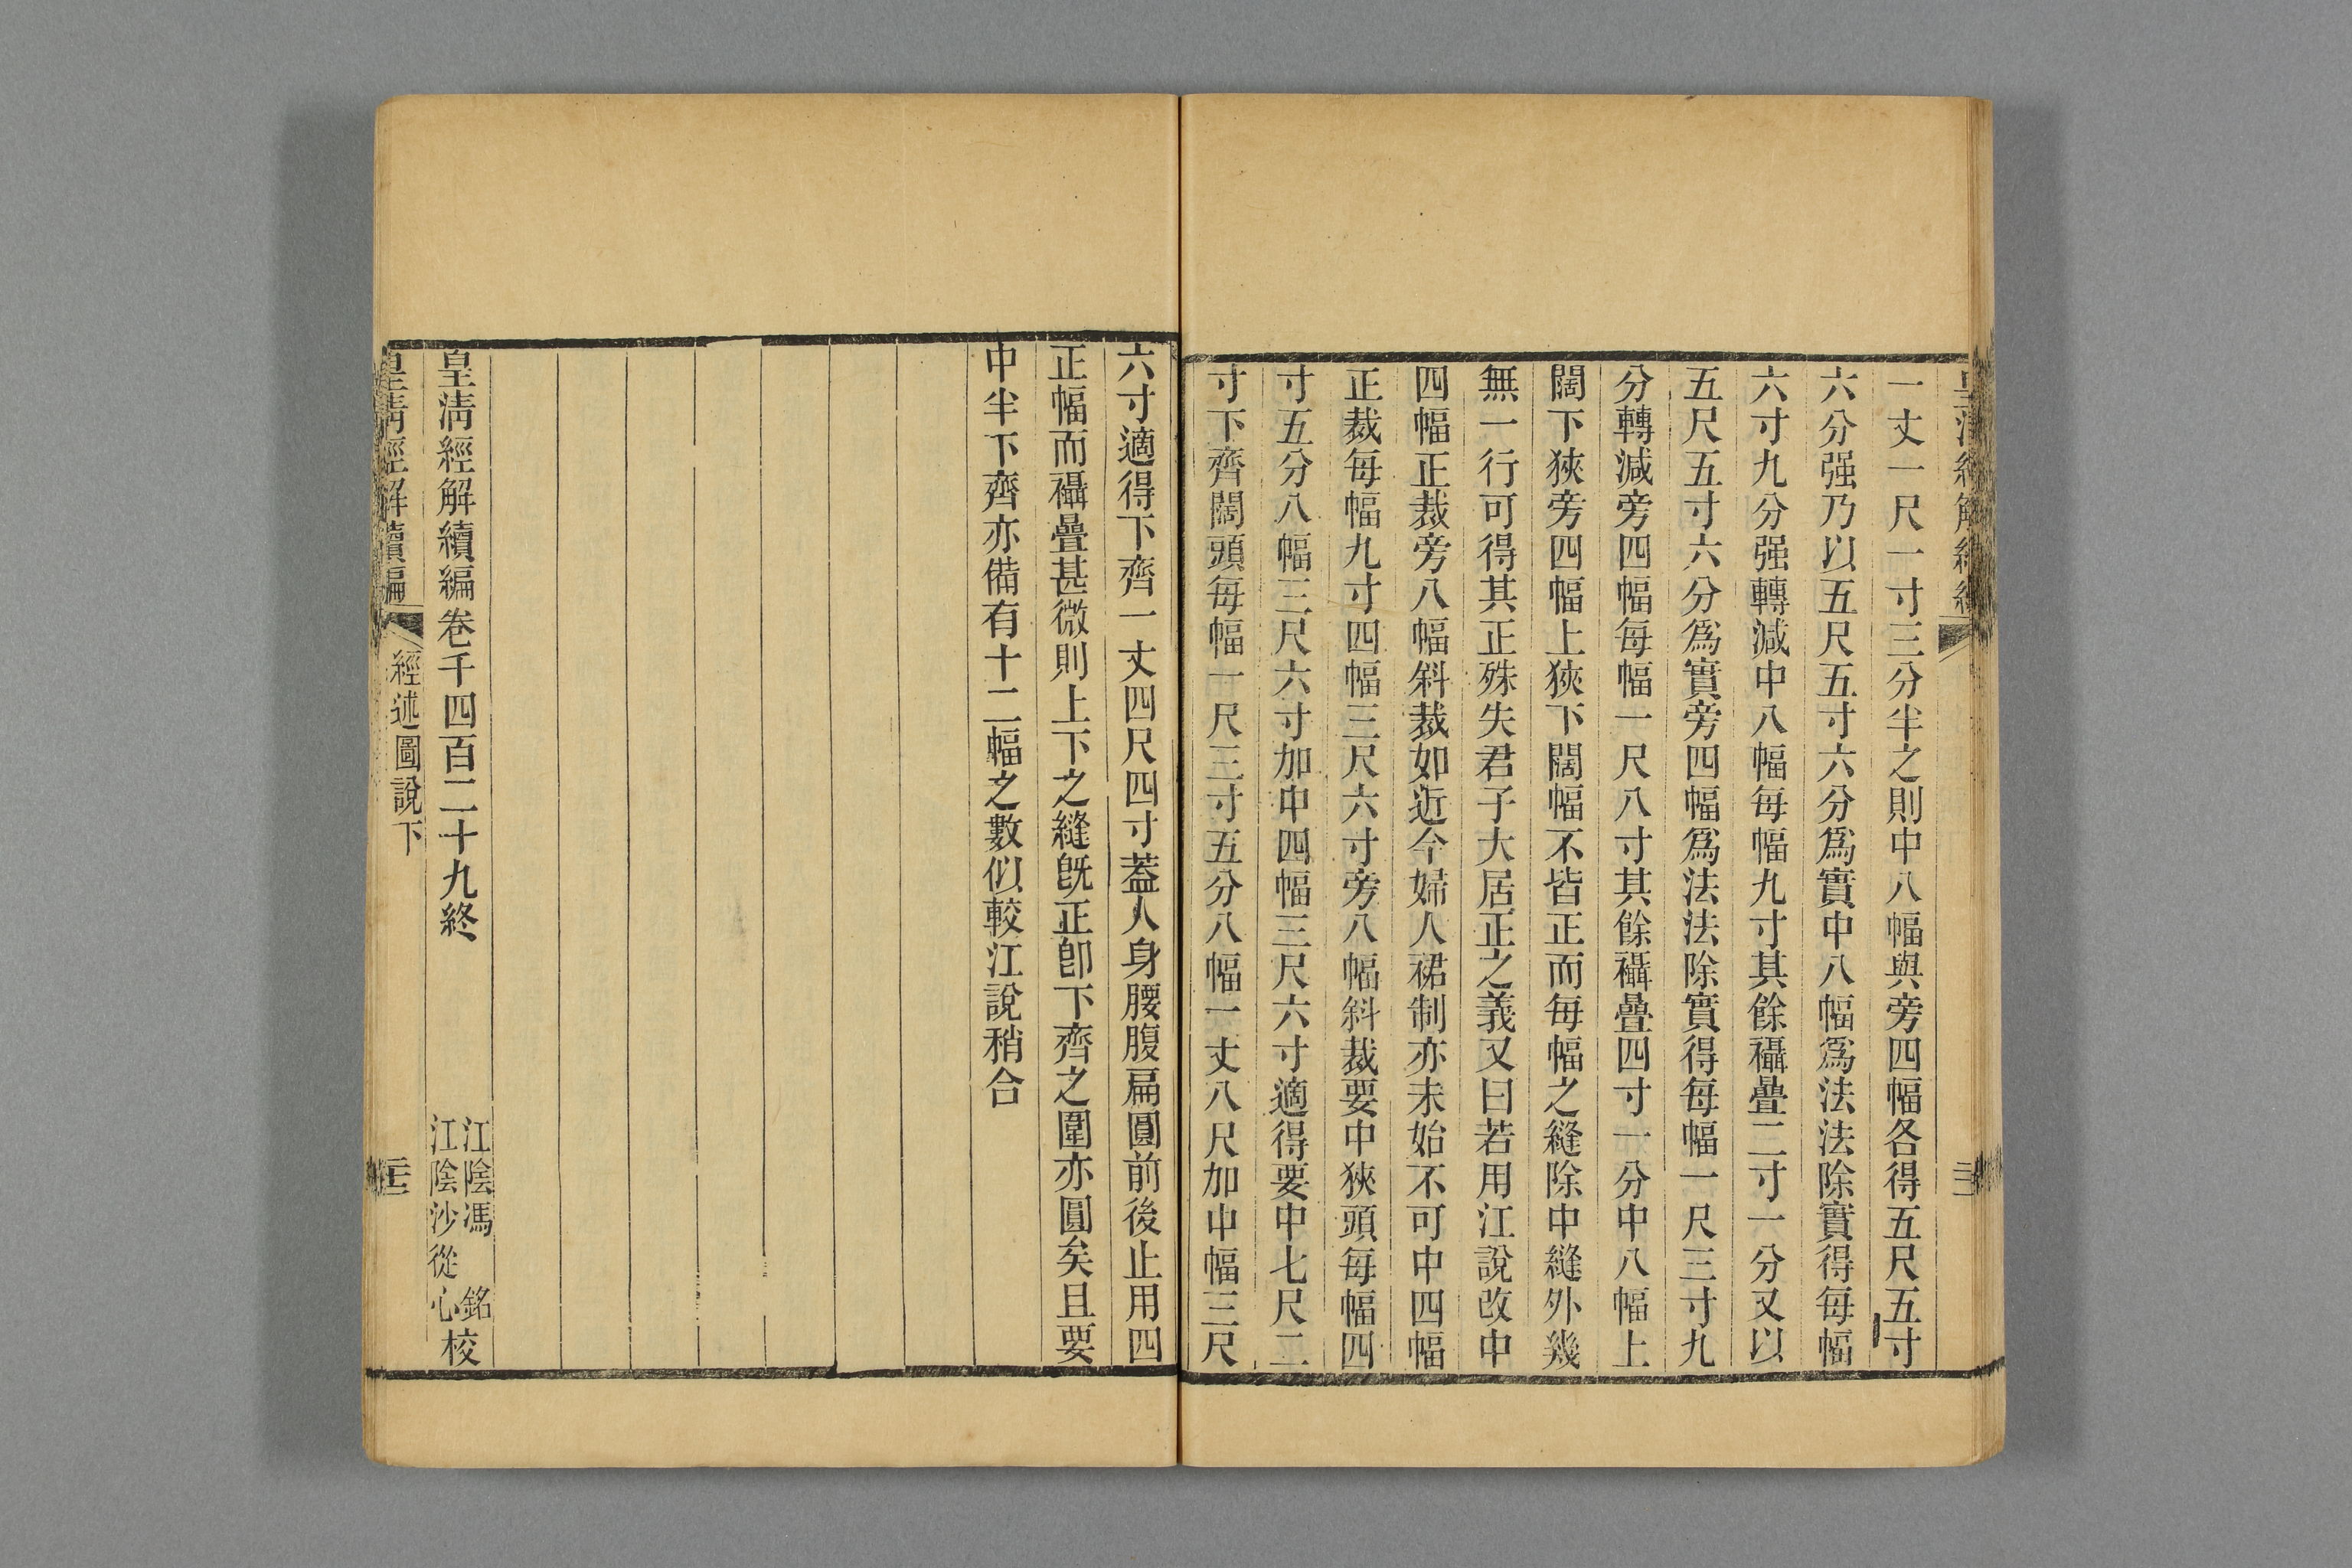 一丈一尺一寸三分半之則中八幅與旁四幅各得五尺五寸
六分强乃以五尺五寸六分爲實中八幅爲法法除實得每幅
六寸九分强轉減中八幅每幅九寸其餘襵疊二寸一分又以
五尺五寸六分爲實旁四幅爲法法除實得每幅一尺三寸九
分轉減旁四幅每幅一尺八寸其餘襵疊四寸一分中八幅上
闊下狹旁四幅上狹下闊幅不皆正而每幅之縫除中縫外幾
無一行可得其正殊失君子大居正之義又曰若用江說改中
四幅正裁旁八幅斜裁如近今婦人裙制亦未始不可中四幅
正裁每幅九寸四幅三尺六寸旁八幅斜裁要中狹頭每幅四
寸五分八幅三尺六寸加中四幅三尺六寸適得要中七尺二
寸下齊闊頭每幅一尺三寸五分八幅一丈八尺加中幅三尺
六寸適得下齊一丈四尺四寸蓋人身腰腹扁圓前後止用四
正幅而襵疊甚微則上下之縫旣正卽下齊之圍亦圓矣且要
中半下齊亦備有十二幅之數似較江說稍合
皇淸經解續編卷千四百二十九終
江陰馮銘
江陰沙從心
校
皇淸經解續編
經述圖說下